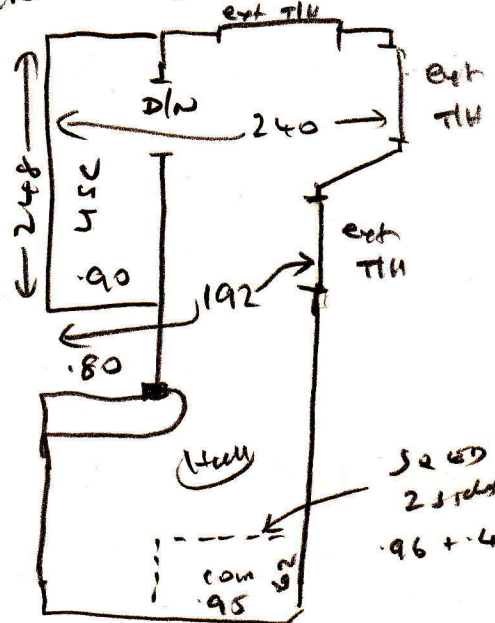 ext T/H
ext
T/H
D/N
240
248
USC
.90
ext
T/H
192
.80
Hall
SQ ED
2
.96 + .4
com
.95